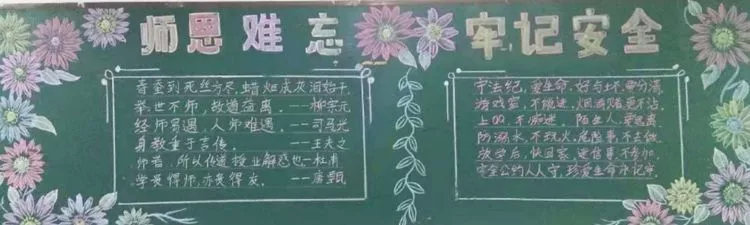 师恩难忘
春蚕到死丝方尽,蜡炬成灰泪始干。
举世不师,故道益离。——柳宗元
经师易遇,人师难遇。——司马光
身教重于言传。——王夫之
师者,所以传道授业解惑也—杜甫
学贵得师,亦贵得友。——唐甄
牢记安全
守法纪,爱生命,好与坏,要分清
游戏室,不能进,烟酒赌更不沾,
上网,不痴迷,陌生人,要远离
防溺水,不玩火,危险事,不去做
放学后,快回家,迷信事,不参加
安全公约人人守,珍爱生命永记牢